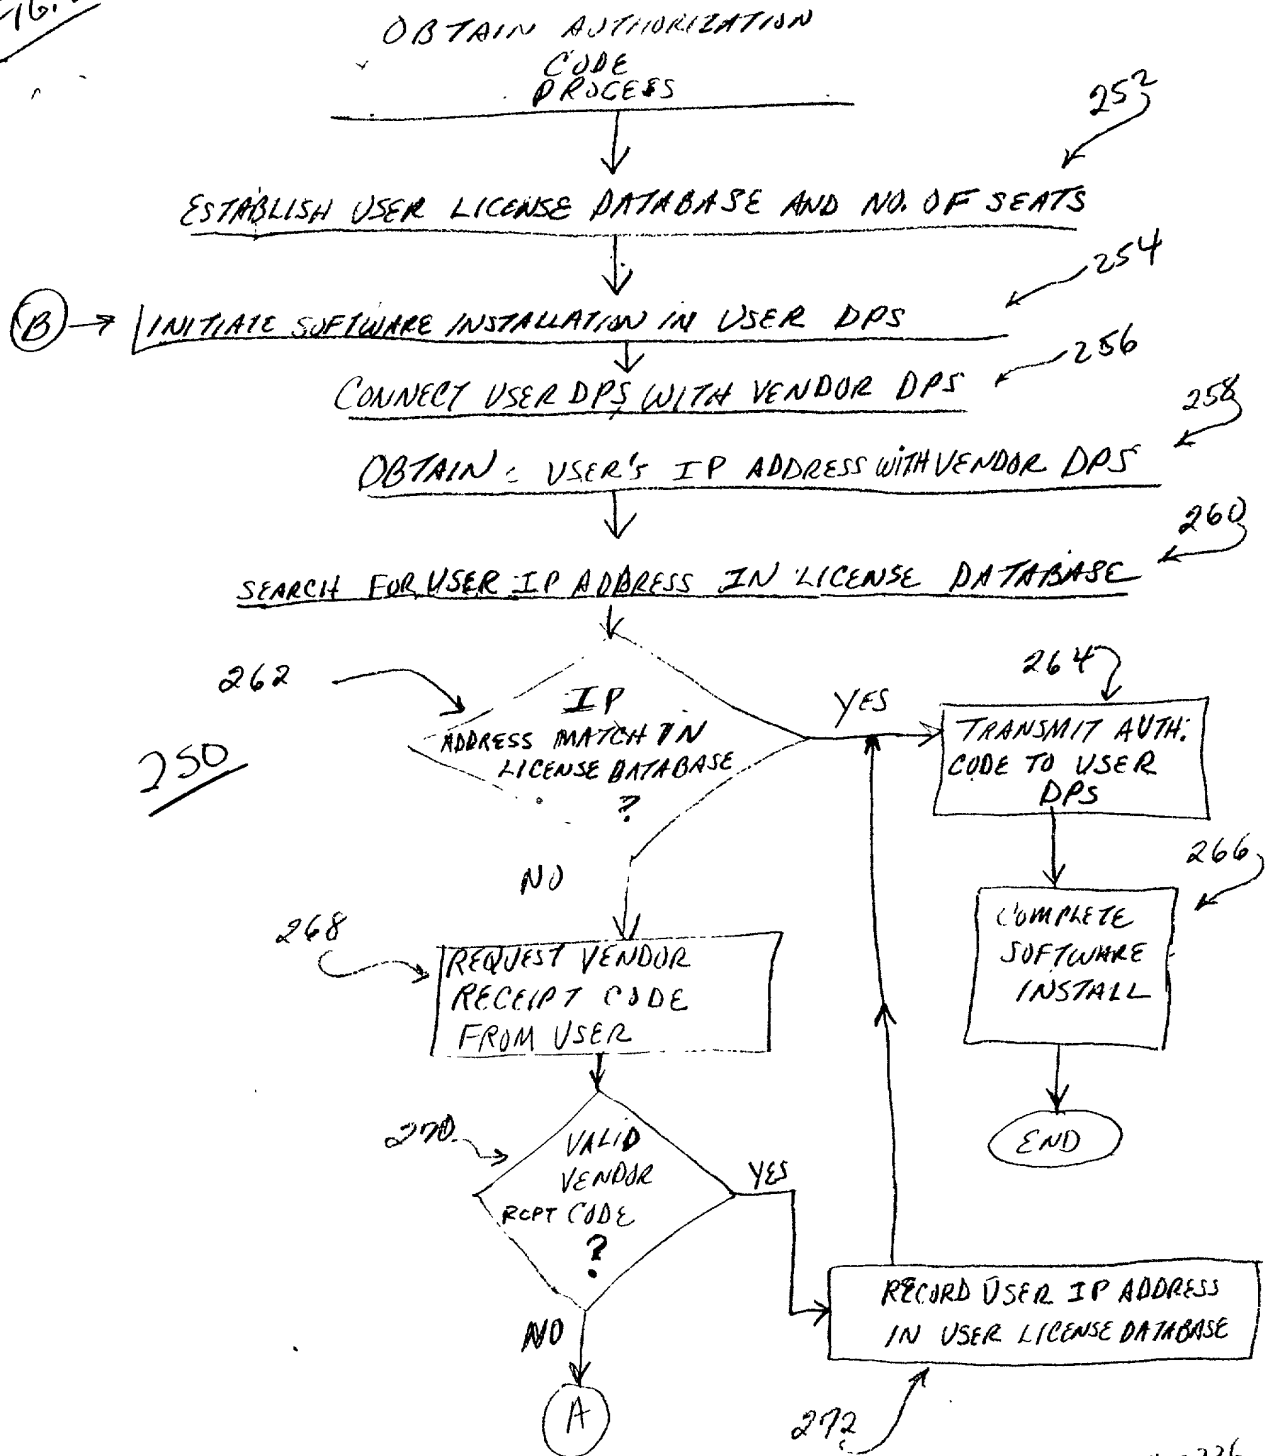 OBTAIN AUTHORIZATION
CODE
PROCESS
252
ESTABLISH USER LICENSE DATABASE AND NO. OF SEATS
254
B
INITIATE SOFTWARE INSTALLATION IN USER DPS
256
CONNECT USER DPS WITH VENDOR DPS
258
OBTAIN: USER'S IP ADDRESS WITH VENDOR DPS
260
SEARCH FOR USER IP ADDRESS IN LICENSE DATABASE
262
IP
ADDRESS MATCH IN
LICENSE DATABASE
?
YES
264
TRANSMIT AUTH.
CODE TO USER
DPS
250
NO
266
COMPLETE
SOFTWARE
INSTALL
268
REQUEST VENDOR
RECEIPT CODE
FROM USER
END
270
VALID
VENDOR
RCPT CODE
?
YES
NO
RECORD USER IP ADDRESS
IN USER LICENSE DATABASE
A
272